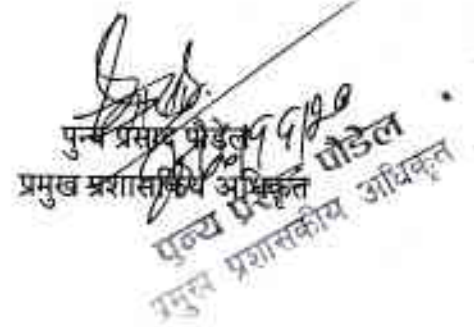 पुन्य प्रसाद पौडेल
प्रमुख प्रशासकिय अधिकृत
पुन्य प्रसाद पौडेल
प्रमुख प्रशासकीय अधिकृत